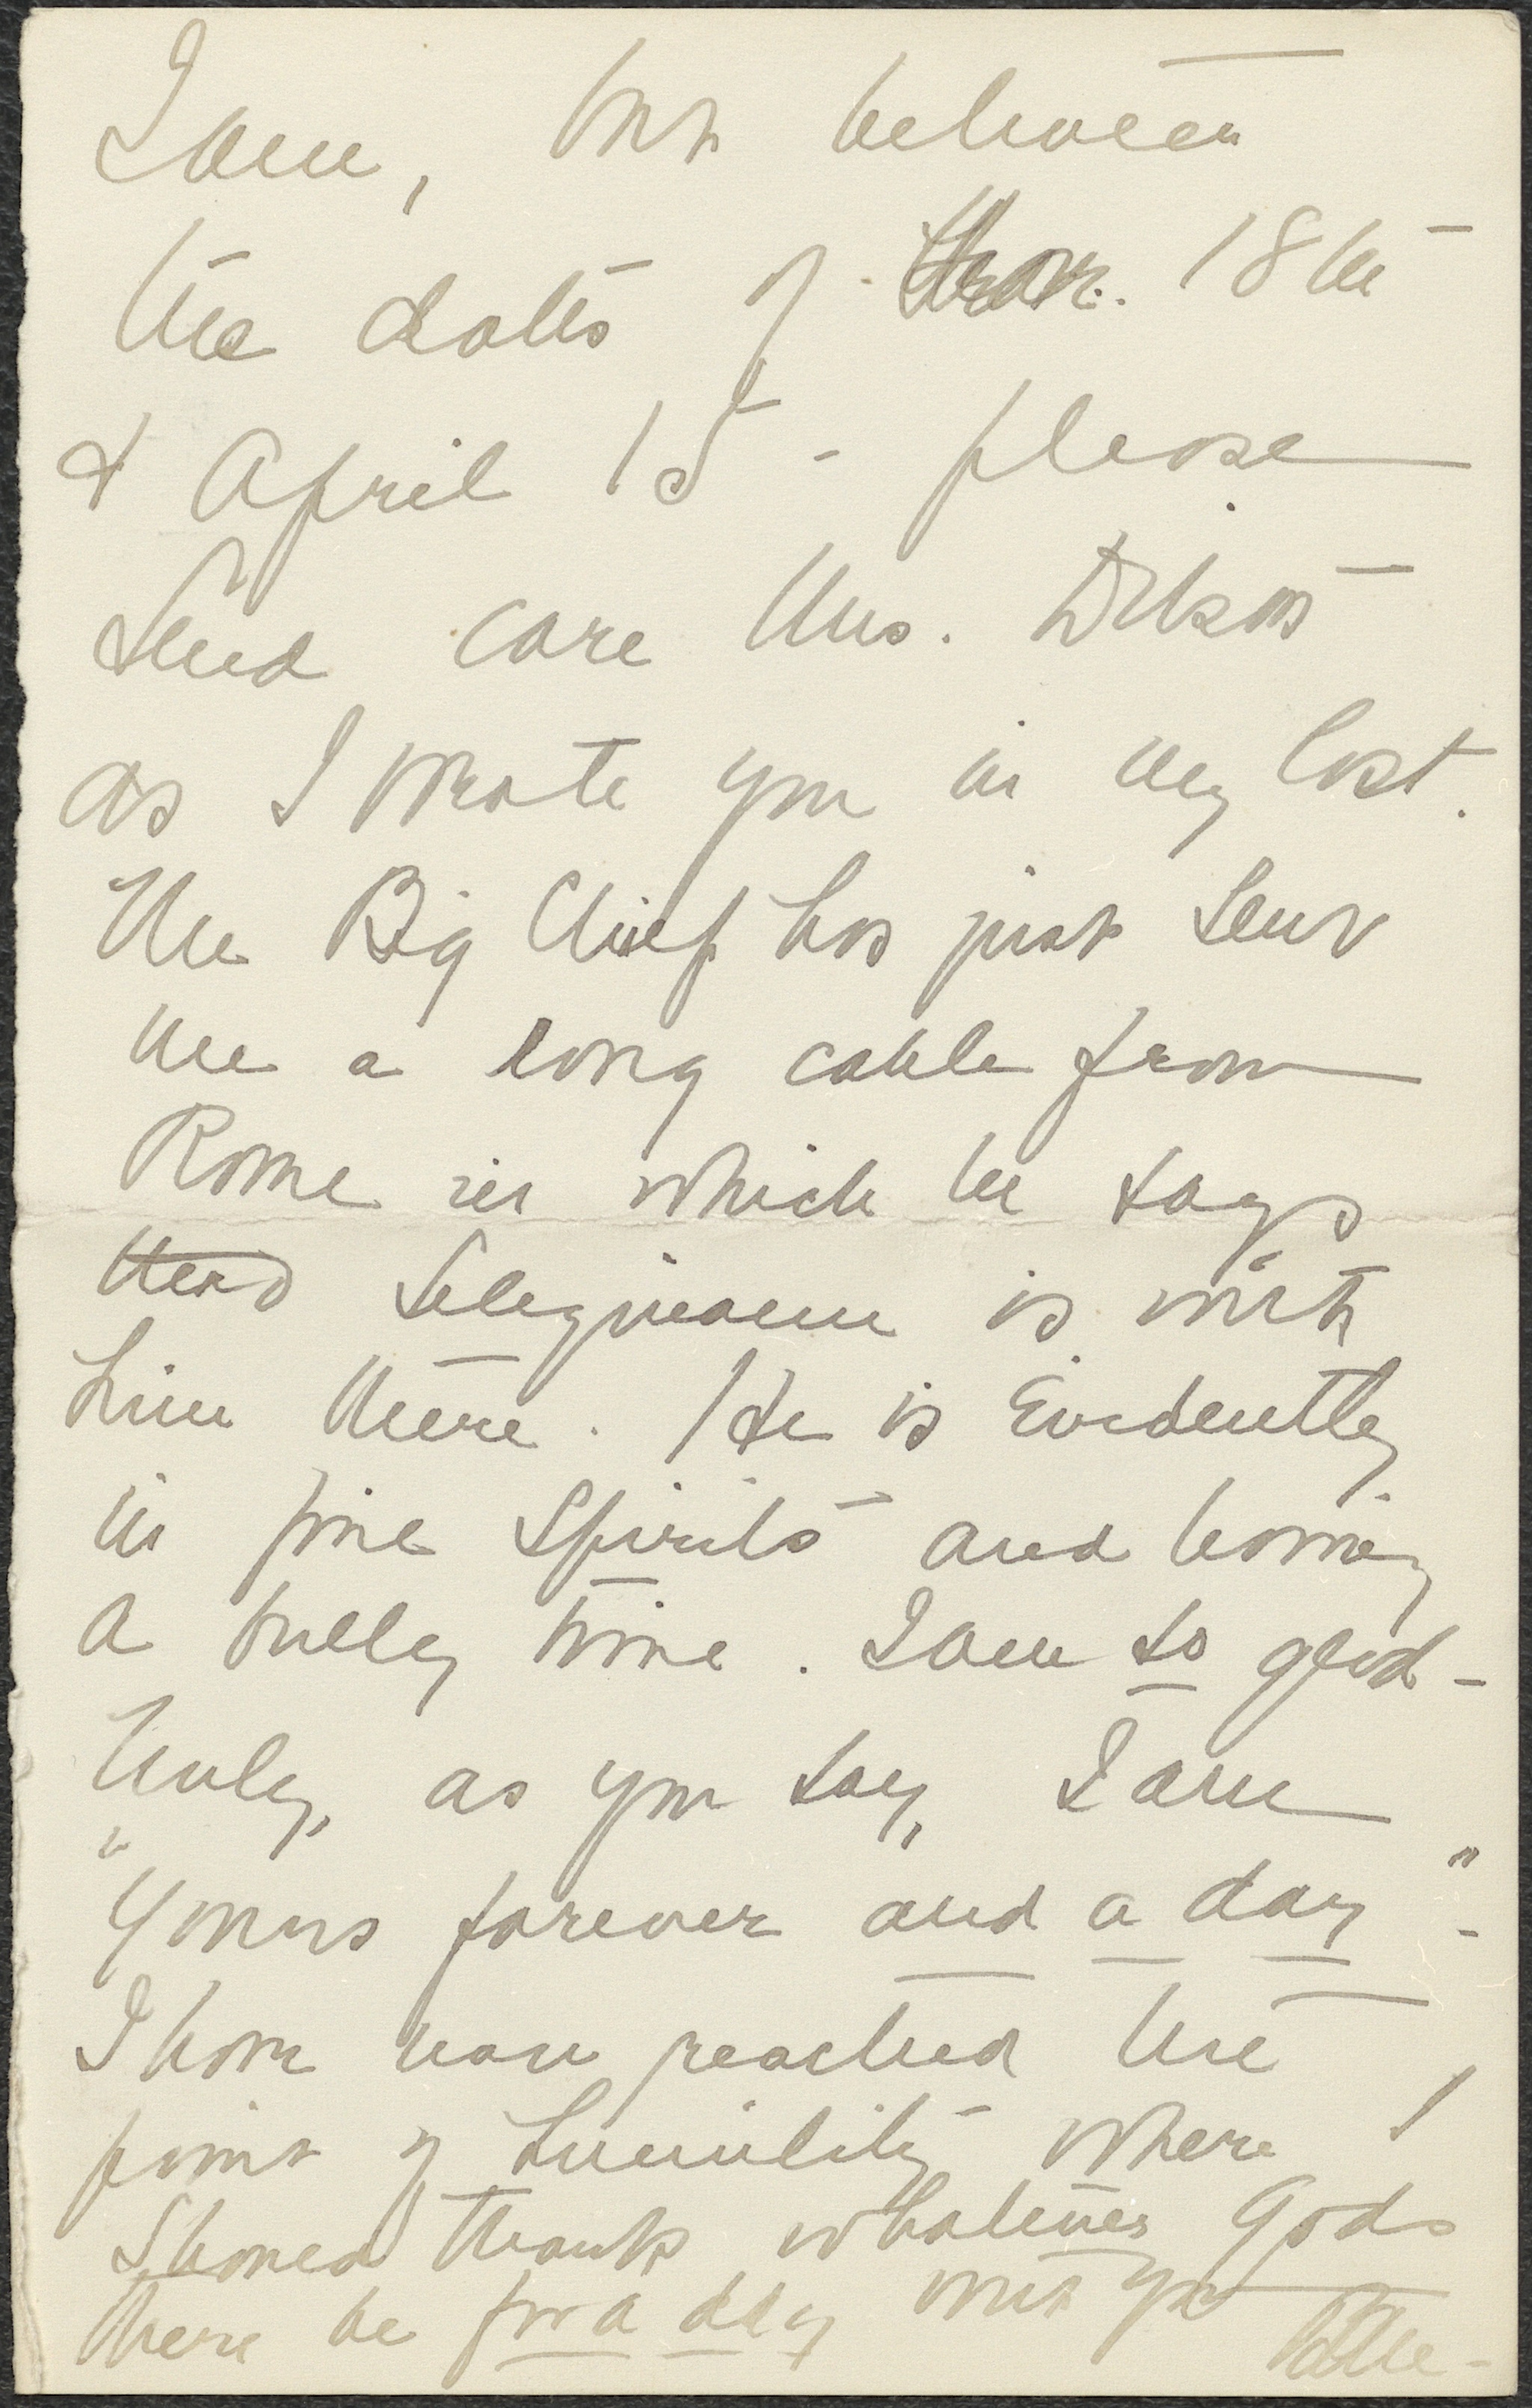 I am, but between
the dates of Mar. 18th
& April 15 - please
send care Mrs.
as I wrote you in my last.
The Big Chief has just sent
me a long cable from
Rome in which he says
Seligmann is with
him there. He is evidently
in fine spirits and having
a bully time. I am so glad -
Truly, as you say, I am
"Yours forever and a day".
I have now reached the
point of humility where I
should thank whatever Gods
there be for a day with you
Belle -